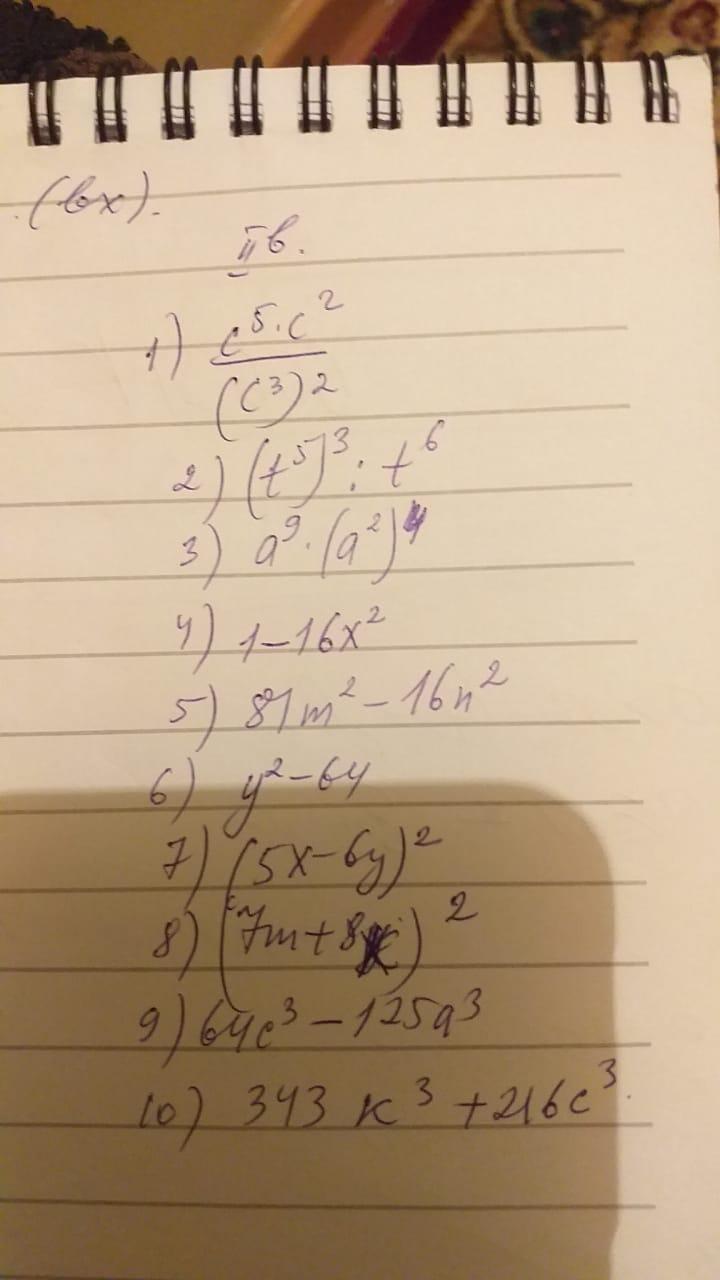 (вх).
II в.
1) c⁵·c² / (c³)²
2) (t⁵)³ : t⁶
3) a⁹·(a²)⁴
4) 1–16x²
5) 81m² – 16n²
6) y²–64
7) (5x–6y)²
8) (7m+8k)²
9) 64c³ – 125a³
10) 343 к³ + 216c³.